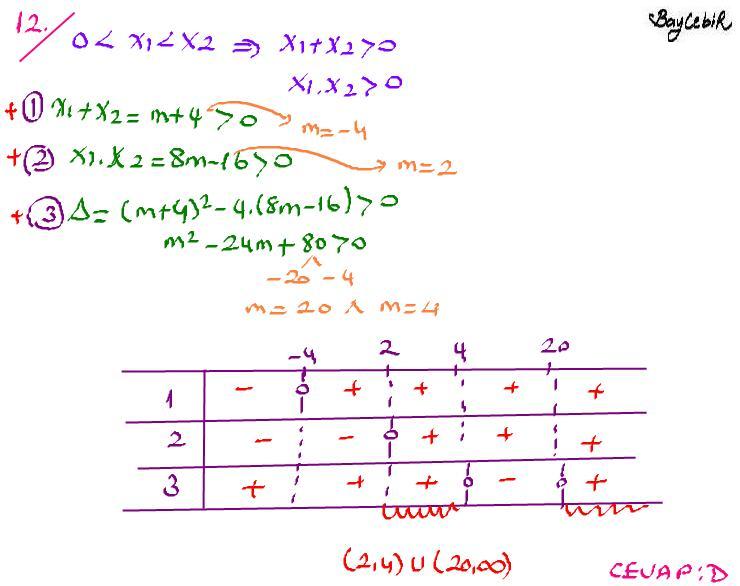 BayCebiR
12.
0 < x₁ < x₂ ⇒ x₁+x₂>0
x₁.x₂>0
+ ① x₁+x₂ = m+4 > 0 → m=-4
+ ② x₁.x₂ = 8m-16>0 → m=2
+ ③ Δ= (m+4)²-4.(8m-16)>0
m²-24m+80>0
-20 -4
m=20 ∧ m=4
-4 2 4 20
1 - 0 + + + +
2 - - 0 + + +
3 + + + 0 - 0 +
(2,4) ∪ (20,∞)
CEVAP:D